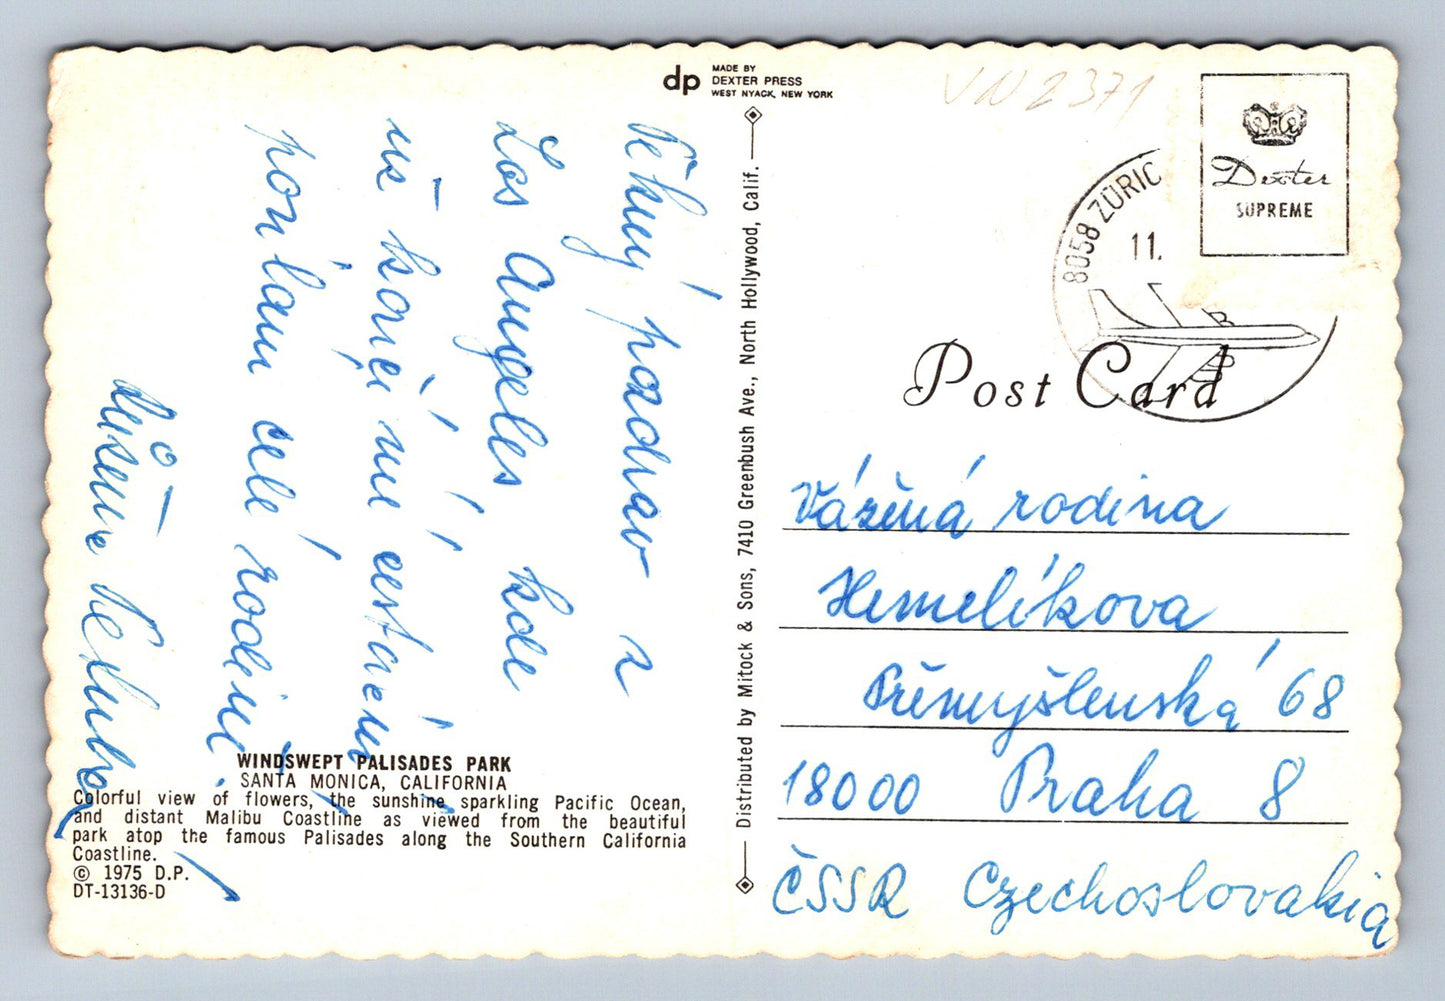 dp
MADE BY
DEXTER PRESS
WEST NYACK, NEW YORK
VN 2371
Pěkný pozdrav z
Los Angeles kde
už končí mé cestování
posílám celé rodině
WINDSWEPT PALISADES PARK
SANTA MONICA, CALIFORNIA
Colorful view of flowers, the sunshine sparkling Pacific Ocean,
and distant Malibu Coastline as viewed from the beautiful
park atop the famous Palisades along the Southern California
Coastline.
© 1975 D.P.
DT-13136-D
Distributed by Mitock & Sons, 7410 Greenbush Ave., North Hollywood, Calif.
Dexter
SUPREME
8058 ZÜRIC
11.
Post Card
Vážená rodina
Hemelíkova
Přemyšlenská 68
18000 Praha 8
ČSSR Czechoslovakia